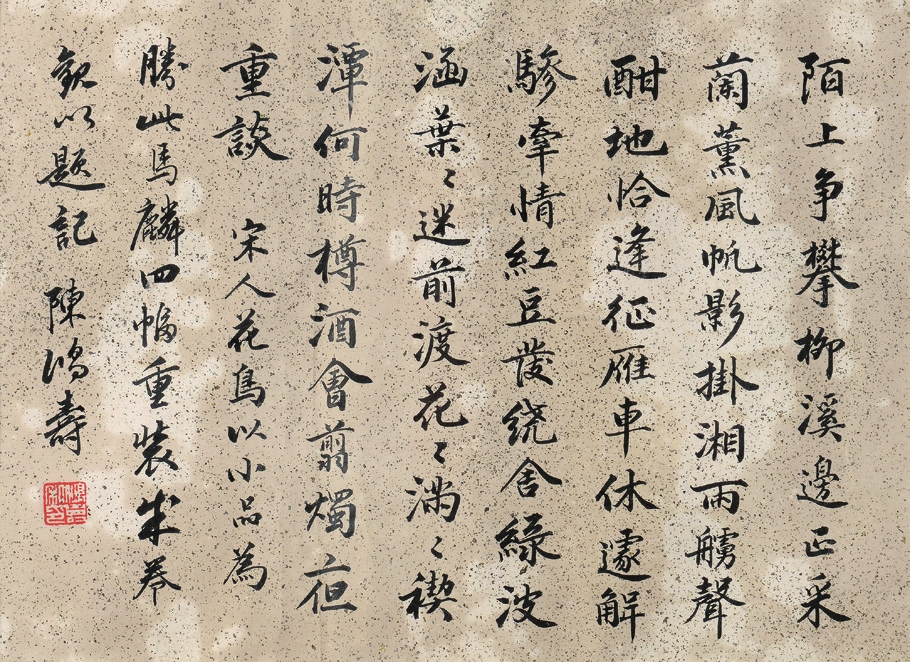 陌上争攀柳溪邊正采
蘭薰風帆影掛湘雨艣聲
酣地恰逢征雁車休遽解
驂牽情紅豆發繞舍綠波
涵葉〻迷前渡花〻滿〻襖
潭何時樽酒會翦燭夜但
重談 宋人花鳥以小品為
勝此馬麟四幅重裝成卷
觀以題記 陳鴻壽